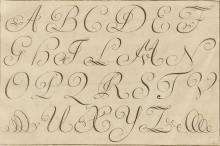 A B C D E F
G H I L M N
O P Q R S T V
U X Y Z